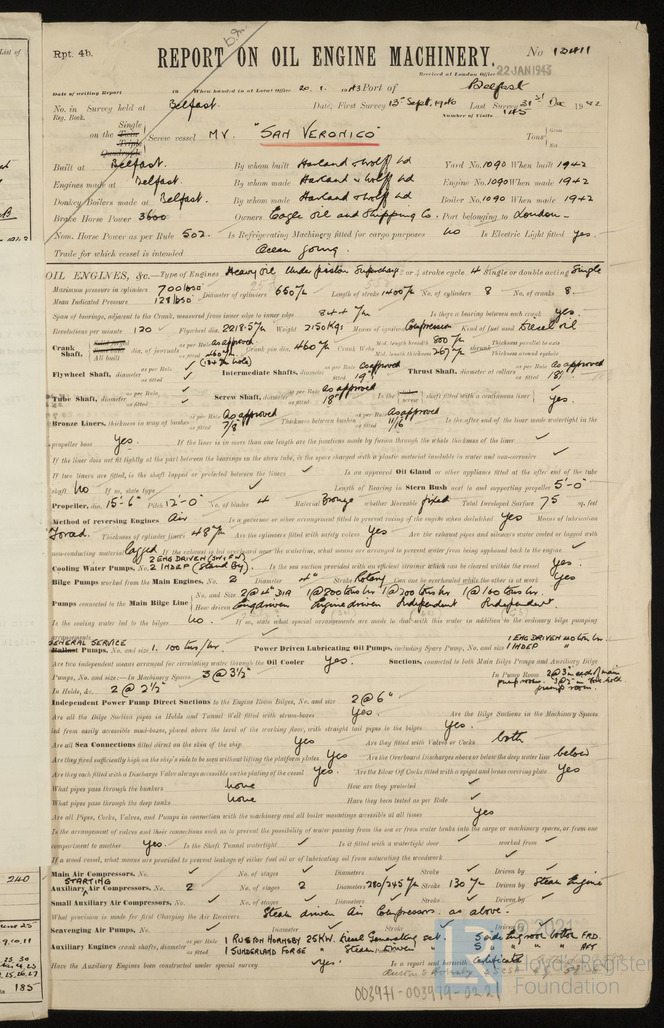 Rpt. 4b.
REPORT ON OIL ENGINE MACHINERY.
No
Received at London Office 22 JAN 1943
Date of writing Report 19 When handed in at Local Office 20. 1. 1943 Port of Belfast
No. in Survey held at Belfast. Date, First Survey 13th Sept. 1940 Last Survey 31st Dec 1942
Reg. Book. Number of Visits
Single
on the Twin Triple Quadruple Screw vessel M.V. "SAN VERONICO" Tons Gross Net
Built at Belfast. By whom built Harland & Wolff Ld Yard No. 1090 When built 1942
Engines made at Belfast By whom made Harland & Wolff Ld Engine No. 1090 When made 1942
Donkey Boilers made at Belfast. By whom made Harland & Wolff Ld. Boiler No. 1090 When made 1942
Brake Horse Power 3600 Owners Eagle Oil and Shipping Co. Port belonging to London
Nom. Horse Power as per Rule 502. Is Refrigerating Machinery fitted for cargo purposes No Is Electric Light fitted yes.
Trade for which vessel is intended Ocean going.
OIL ENGINES, &c.—Type of Engines Heavy oil Under piston Supercharge 2 or 4 stroke cycle 4 Single or double acting Single
Maximum pressure in cylinders 700 lbs Diameter of cylinders 650 m/m Length of stroke 1400 m/m No. of cylinders 8 No. of cranks 8.
Mean Indicated Pressure 128 lbs
Span of bearings, adjacent to the Crank, measured from inner edge to inner edge 844 m/m Is there a bearing between each crank yes.
Revolutions per minute 120 Flywheel dia. 2218.5 m/m Weight 2150 Kgs. Means of ignition Compression Kind of fuel used Diesel oil
Crank Shaft, dia. of journals as per Rule as approved as fitted 460 m/m Crank pin dia. 460 m/m Crank Webs Mid. length breadth 800 m/m Thickness parallel to axis
All built Mid. length thickness 267 m/m shrunk Thickness around eyehole
Flywheel Shaft, diameter as per Rule as fitted Intermediate Shafts, diameter as per Rule as approved as fitted Thrust Shaft, diameter at collars as per Rule as approved as fitted
Tube Shaft, diameter as per Rule as fitted Screw Shaft, diameter as per Rule as approved as fitted 18" Is the screw shaft fitted with a continuous liner yes.
Bronze Liners, thickness in way of bushes as per Rule as approved as fitted 7/8" Thickness between bushes as per Rule as approved as fitted 11/16 Is the after end of the liner made watertight in the
propeller boss yes. If the liner is in more than one length are the junctions made by fusion through the whole thickness of the liner ✓
If the liner does not fit tightly at the part between the bearings in the stern tube, is the space charged with a plastic material insoluble in water and non-corrosive ✓
If two liners are fitted, is the shaft lapped or protected between the liners ✓ Is an approved Oil Gland or other appliance fitted at the after end of the tube
shaft. No If so, state type ✓ Length of Bearing in Stern Bush next to and supporting propeller 5'-0"
Propeller, dia. 15'-6" Pitch 12'-0" No. of blades 4 Material Bronze whether Moveable fixed Total Developed Surface 75 sq. feet
Method of reversing Engines Air Is a governor or other arrangement fitted to prevent racing of the engine when declutched Yes Means of lubrication
Forced. Thickness of cylinder liners 48 m/m Are the cylinders fitted with safety valves Yes Are the exhaust pipes and silencers water cooled or lagged with
non-conducting material lagged If the exhaust is led overboard near the waterline, what means are arranged to prevent water from being syphoned back to the engine ✓
Cooling Water Pumps, No. 2 ENG DRIVEN 2 INDEP (Stand by) Is the sea suction provided with an efficient strainer which can be cleared within the vessel yes.
Bilge Pumps worked from the Main Engines, No. 2 Diameter 4" Stroke Rotary Can one be overhauled while the other is at work Yes
Pumps connected to the Main Bilge Line No. and Size 2 @ 4" DIA 1 @ 200 tons hr 1 @ 200 tons hr 1 @ 100 tons hr.
How driven Eng driven Engine driven Independent Independent
Is the cooling water led to the bilges No. If so, state what special arrangements are made to deal with this water in addition to the ordinary bilge pumping
arrangements
GENERAL SERVICE
Ballast Pumps, No. and size 1. 100 tons/hr. Power Driven Lubricating Oil Pumps, including Spare Pump, No. and size 1 ENG DRIVEN 1 INDEP "
Are two independent means arranged for circulating water through the Oil Cooler Yes. Suctions, connected to both Main Bilge Pumps and Auxiliary Bilge
Pumps, No. and size:—In Machinery Spaces 3 @ 3½" In Pump Room
In Holds, &c. 2 @ 2½"
Independent Power Pump Direct Suctions to the Engine Room Bilges, No. and size 2 @ 6"
Are all the Bilge Suction pipes in Holds and Tunnel Well fitted with strum-boxes Yes. Are the Bilge Suctions in the Machinery Spaces
led from easily accessible mud-boxes, placed above the level of the working floor, with straight tail pipes to the bilges Yes.
Are all Sea Connections fitted direct on the skin of the ship Yes Are they fitted with Valves or Cocks both
Are they fixed sufficiently high on the ship's side to be seen without lifting the platform plates Yes Are the Overboard Discharges above or below the deep water line below
Are they each fitted with a Discharge Valve always accessible on the plating of the vessel Yes. Are the Blow Off Cocks fitted with a spigot and brass covering plate Yes
What pipes pass through the bunkers None How are they protected ✓
What pipes pass through the deep tanks None Have they been tested as per Rule ✓
Are all Pipes, Cocks, Valves, and Pumps in connection with the machinery and all boiler mountings accessible at all times Yes
Is the arrangement of valves and their connections such as to prevent the possibility of water passing from the sea or from water tanks into the cargo or machinery spaces, or from one
compartment to another Yes. Is the Shaft Tunnel watertight ✓ Is it fitted with a watertight door ✓ worked from ✓
If a wood vessel, what means are provided to prevent leakage of either fuel oil or of lubricating oil from saturating the woodwork
Main Air Compressors, No. ✓ No. of stages ✓ Diameters ✓ Stroke ✓ Driven by ✓
STARTING
Auxiliary Air Compressors, No. 2 No. of stages 2 Diameters 280/245 m/m Stroke 130 m/m Driven by Steam Engine
Small Auxiliary Air Compressors, No. ✓ No. of stages ✓ Diameters ✓ Stroke ✓ Driven by ✓
What provision is made for first Charging the Air Receivers Steam driven Air Compressors as above.
Scavenging Air Pumps, No. ✓ Diameter ✓ Stroke ✓ Driven by
Auxiliary Engines crank shafts, diameter as per Rule as fitted 1 RUSTON HORNSBY 25KW. Diesel Generating set. FRD.
1 SUNDERLAND FORGE " Steam Driven " AFT
Have the Auxiliary Engines been constructed under special survey yes. Is a report sent herewith Certificate
Ruston & Hornsby
003971-003979-0221
© 2021
LR
Lloyd's Register
Foundation
List of
240
9.10.11
185